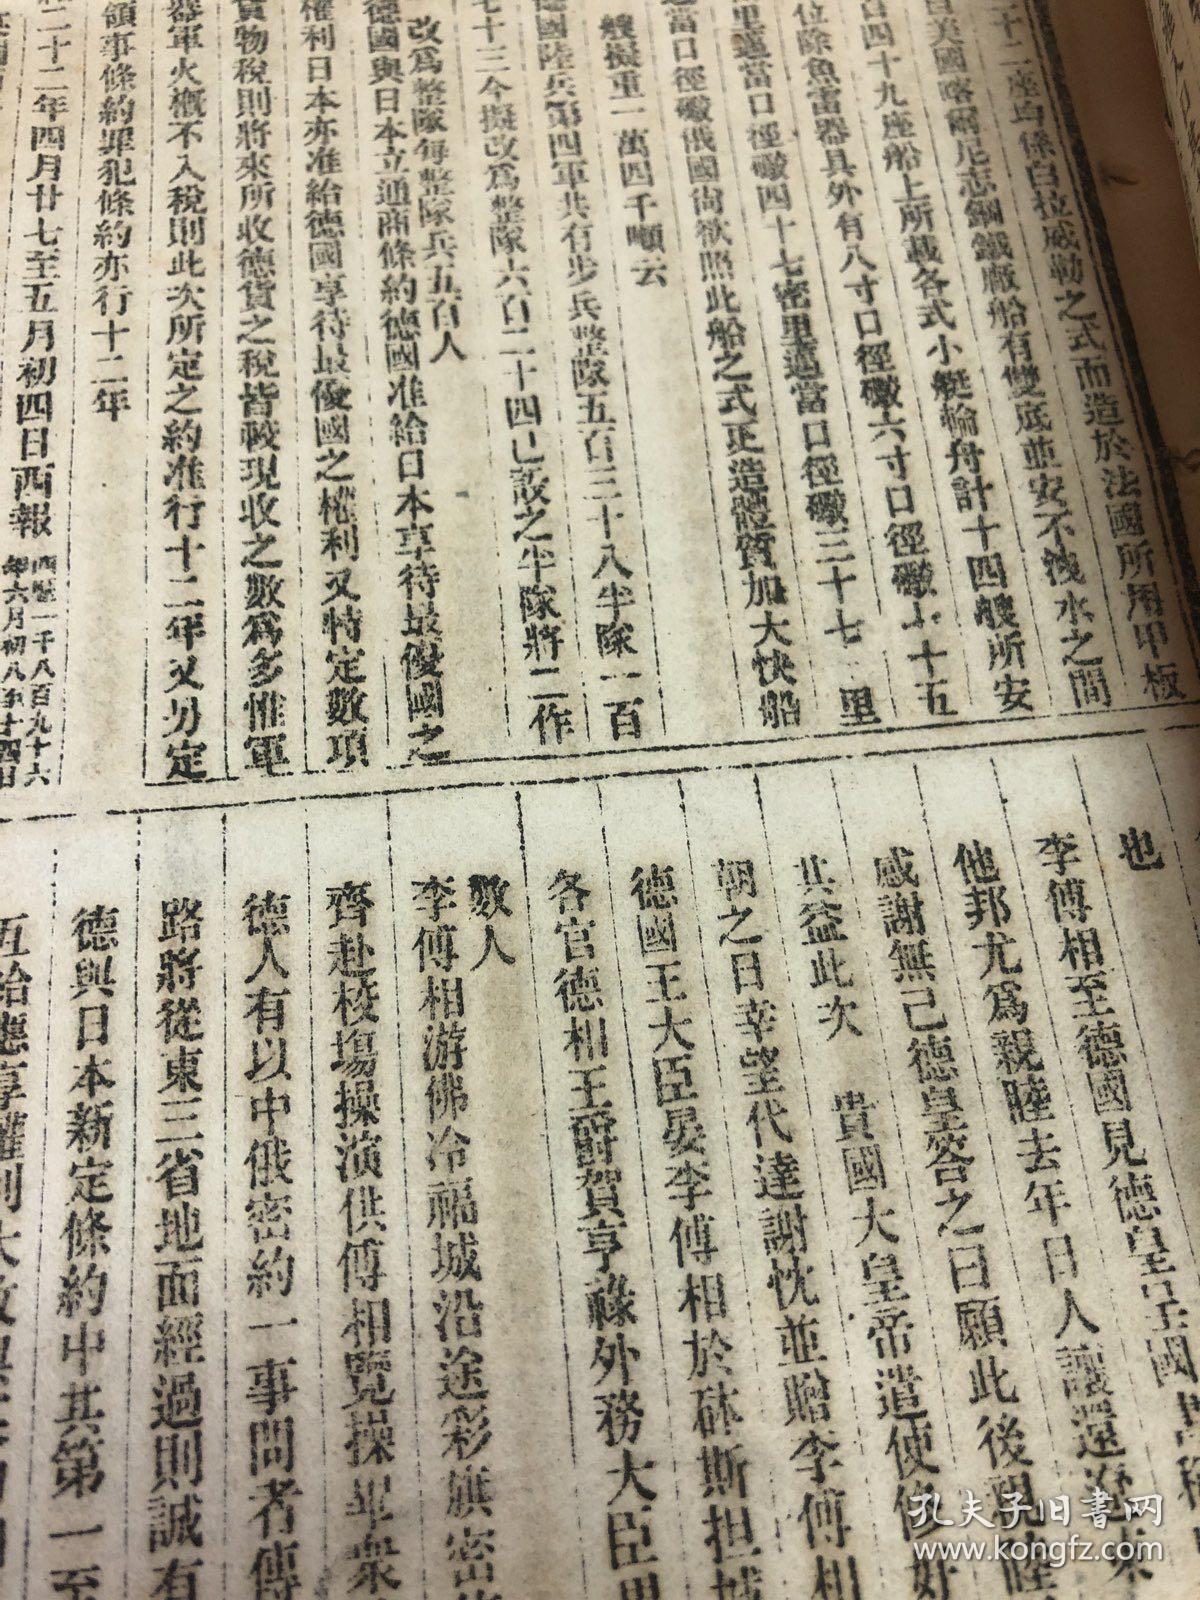 二十二座均係白拉威勒之式而造於法國所用甲板
美國喀爾尼志鋼鐵廠船有雙底並安不洩水之間
百四十九座船上所載各式小艇輪舟計十四艘所安
位除魚雷器具外有八寸口徑礮六寸口徑礮 十五
里邁當口徑礮四十七密里邁當口徑礮三十七 里
邁當口徑礮俄國尚欲照此船之式正造體質加大快船
艘擬重一萬四千噸云
德國陸兵第四軍共有步兵整隊五百三十八半隊一百
七十三今擬改為整隊六百二十四已設之半隊將二作
改為整隊每整隊兵五百人
德國與日本立通商條約德國准給日本享待最優國之
權利日本亦准給德國享待最優國之權利又特定數項
貨物稅則將來所收德貨之稅皆較現收之數為多惟軍
器軍火概不入稅則此次所定之約准行十二年又另定
領事條約罪犯條約亦行十二年
二十二年四月廿七至五月初四日西報
西歷一千八百九十六
年六月初八至十四日
也
李傅相至德國見德皇呈國書
他邦尤為親睦去年日人讓還遼東
感謝無已德皇答之曰願此後親睦
其益此次 貴國大皇帝遣使修好
朝之日幸望代達謝忱並贈李傅相
德國王大臣宴李傅相於砵斯担城
各官德相王爵賀亨祿外務大臣
數人
李傅相游佛冷福城沿途彩旗密
齊赴校塲操演供傅相覽操畢衆
德人有以中俄密約一事問者傅
路將從東三省地面經過則誠有
德與日本新定條約中其第一至
互給應享權利大
孔夫子旧書网
www.kongfz.com